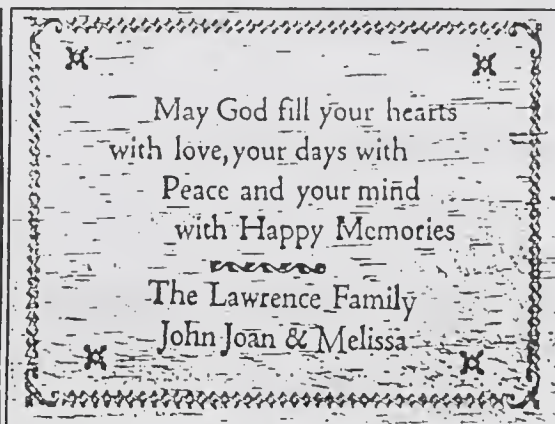 May God fill your hearts
with love, your days with
Peace and your mind
with Happy Memories
The Lawrence Family
John Joan & Melissa